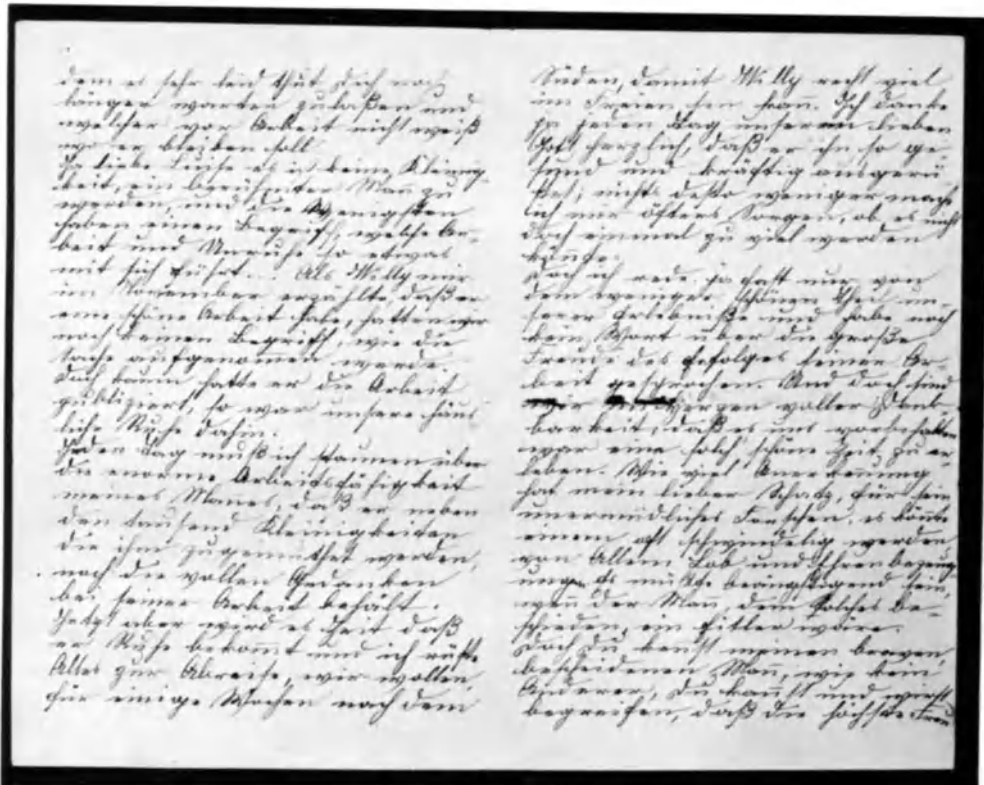 dem es sehr leid thut, Dich noch
länger warten zu laßen und
welcher vor Arbeit nicht weiß
wo er bleiben soll.
Ja liebe Luise es is keine Kleinig-
keit, ein berühmter Mañ zu
werden, und die Wenigsten
haben einen Begriff, welche Ar-
beit und Unruhe so etwas
mit sich führt. Als Willy mir
im November erzählte, daß er
eine schöne Arbeit habe, hatten wir
noch keinen Begriff, wie die
Sache aufgenomen werde.
Doch kaum hatte er die Arbeit
publiziert, so war unsere häus
liche Ruhe dahin.
Jeden Tag muß ich staunen über
die enorme Arbeitsfähigkeit
meines Mannes, daß er neben
den tausend Kleinigkeiten
die ihm zugemuthet werden,
noch die vollen Gedanken
bei seiner Arbeit behält.
Jetzt aber wird es Zeit daß
er Ruhe bekomt und ich rüste
Alles zur Abreise, wir wollen
für einige Wochen nach dem
Süden, damit Willy recht viel
im Freien sein kañ. Ich danke
ja jeden Tag unserem lieben
Gott herzlich, daß er ihn so ge-
sund und kräftig ausgerü
stet; nichts desto weniger mache
ich mir öfters Sorgen, ob es nicht
doch einmal zu viel werden
köñte.
Doch ich rede ja fast nur von
dem weniger schönen Theil un-
serer Erlebniße und habe noch
kein Wort über die große
Freude des Erfolges seiner Ar-
beit gesprochen. Und doch sind
wir im Herzen voller Dank-
barkeit, daß es uns vorbehalten
war eine solch' schöne Zeit zu er-
leben. Wie viel Anerkennung
hat mein lieber Schatz, für sein
unermüdliches Forschen, es köñte
einem oft schwindelig werden
von Allem Lob und Ehrenbezeug-
ungen. Es müßte beängstigend sein,
weñ der Mañ, dem Solches be-
schieden, ein Eitler wäre.
Doch Du keñst meinen braven,
bescheidenen Mañ, wie kein
Anderer, Du kañst und wirst
begreifen, daß die höchste Freu